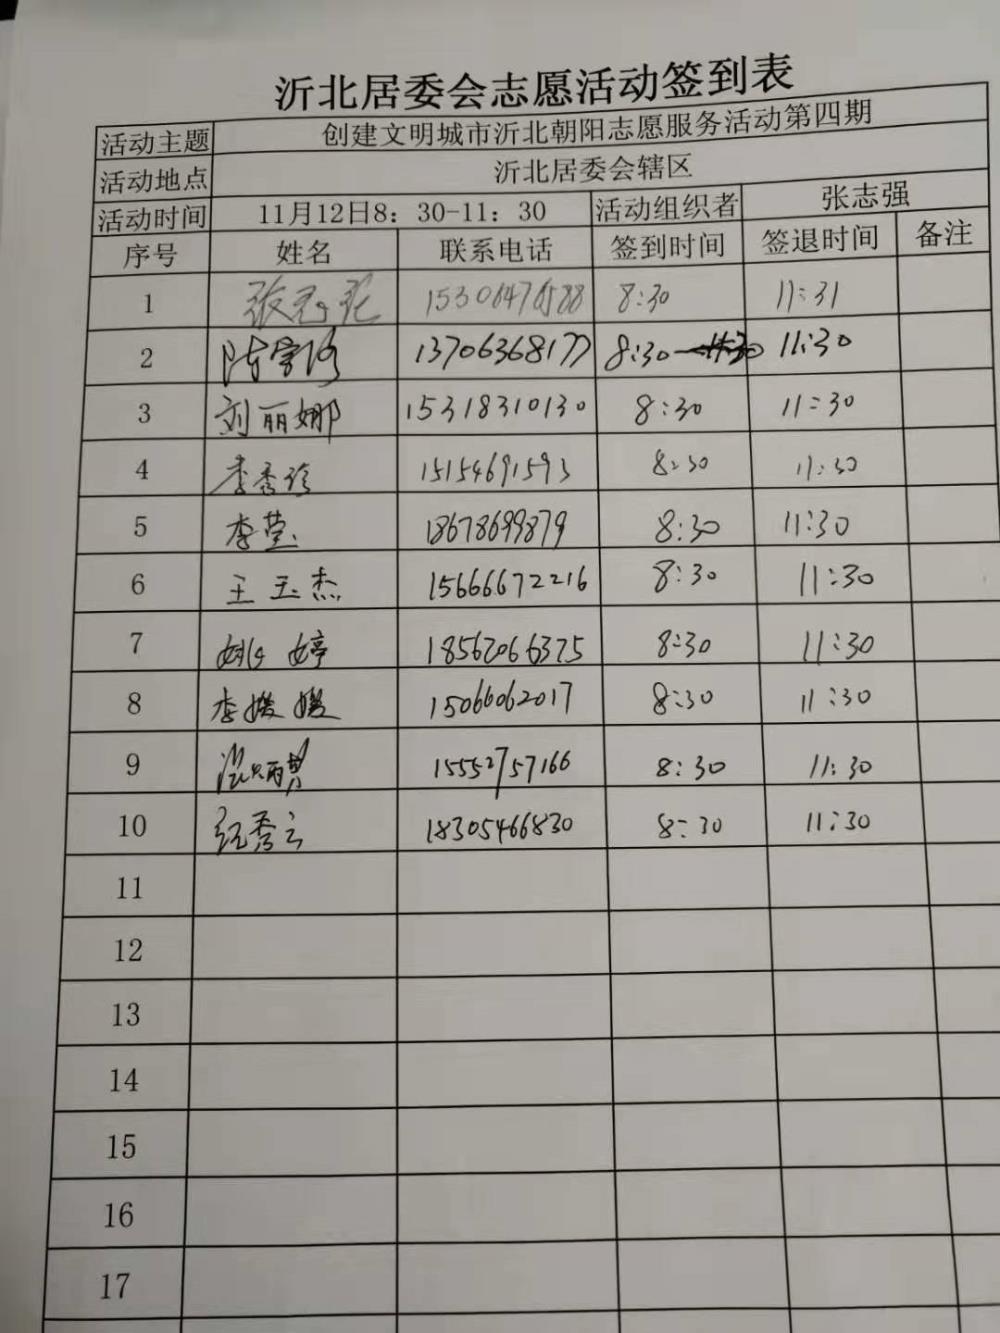 沂北居委会志愿活动签到表
活动主题 创建文明城市沂北朝阳志愿服务活动第四期
活动地点 沂北居委会辖区
活动时间 11月12日8：30-11：30 活动组织者 张志强
序号 姓名 联系电话 签到时间 签退时间 备注
1 8:30 11:31
2 13706368177 8:30 11:30
3 刘丽娜 15318310130 8:30 11:30
4 李秀珍 15154691593 8:30 11:30
5 李莹 18678699879 8:30 11:30
6 王玉杰 15666672216 8:30 11:30
7 姚婷 18562066375 8:30 11:30
8 李媛媛 15066062017 8:30 11:30
9 15552757166 8:30 11:30
10 纪秀云 18305466830 8:30 11:30
11
12
13
14
15
16
17